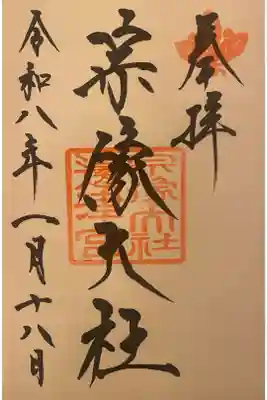 奉拝
宗像大社
令和八年一月十八日
宗像大社